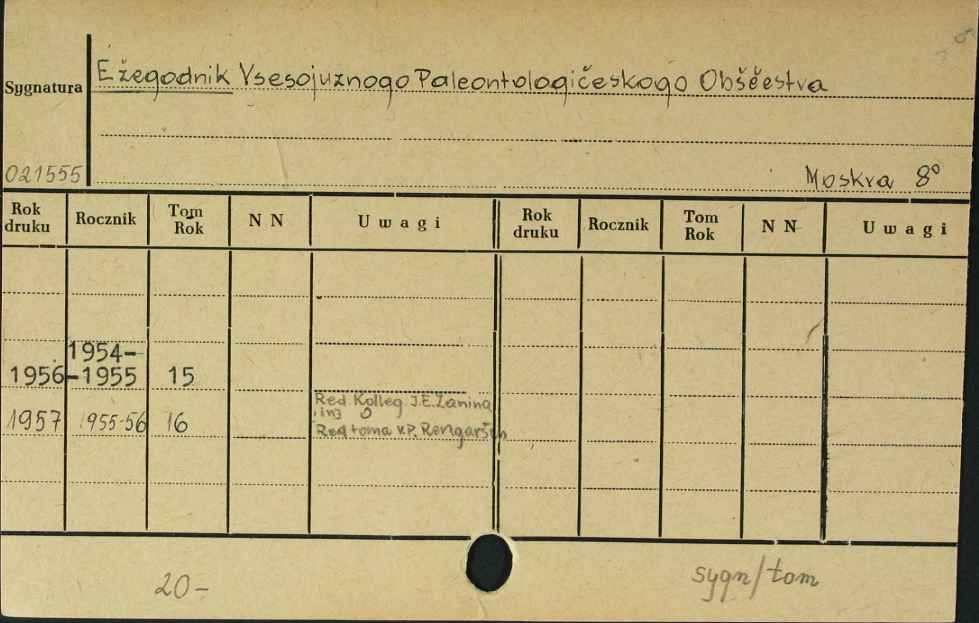 Sygnatura
Ežegodnik Vsesojuznogo Paleontologičeskogo Obščestva
021555
Moskva 8°
Rok druku Rocznik Tom Rok N N Uwagi Rok druku Rocznik Tom Rok N N Uwagi
1954-
1956 -1955 15
Red Kolleg J.E. Zanina
1957 1955-56 16
i inj
Red toma V.P. Rengarten
20-
sygn/tom